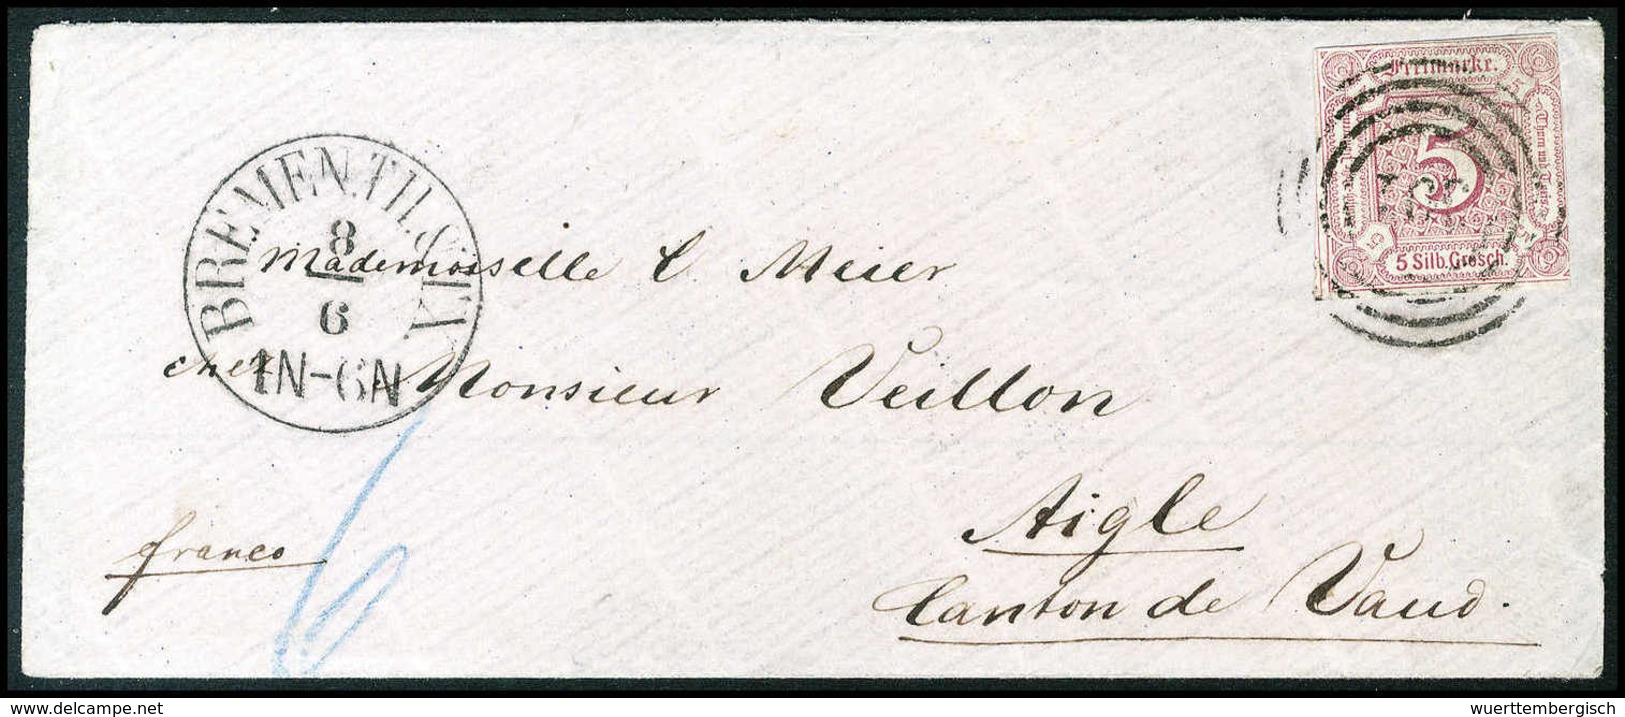 Freimarke.
Thurn und Taxis
5
5 Silb. Grosch.
BREMEN.TH.&TX
8
6
1N-6N
Mademoiselle C. Meier
chez Monsieur Veillon
Aigle
Canton de Vaud.
franco
6
www.delcampe.net
wuerttembergisch